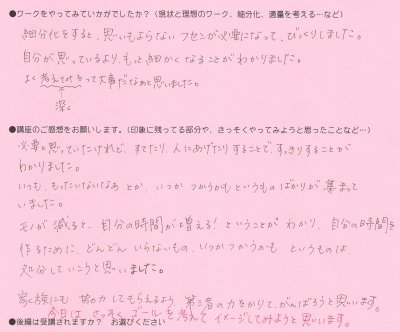 ●ワークをやってみていかがでしたか？（現状と理想のワーク、細分化、適量を考える…など）
細分化をすると、思いもよらない フセンが必要になって、びっくりしました。
自分が思っているより、もっと細かくなることがわかりました。
よく考えてみるって大事だなぁと思いました。
深く
●講座のご感想をお願いします。（印象に残ってる部分や、さっそくやってみようと思ったことなど…）
必要と思っていたけれど、すてたり、人にあげたりすることで、すっきりすることが
わかりました。
いつも、もったいないなぁ とか、いつか つかうかもというもの ばかりが 集まって
いました。
モノが 減ると、自分の時間が増える！ ということが わかり、自分の時間を
作るために、どんどん いらないもの、いつかつかうかも というものは、
処分していこうと思いました。
家族にも 協力してもらえるよう、第三者の力をかりて、がんばろうと思います。
今日は さっそく ゴールを考えて イメージしてみようと思います。
●後編は受講されますか？　お選びください